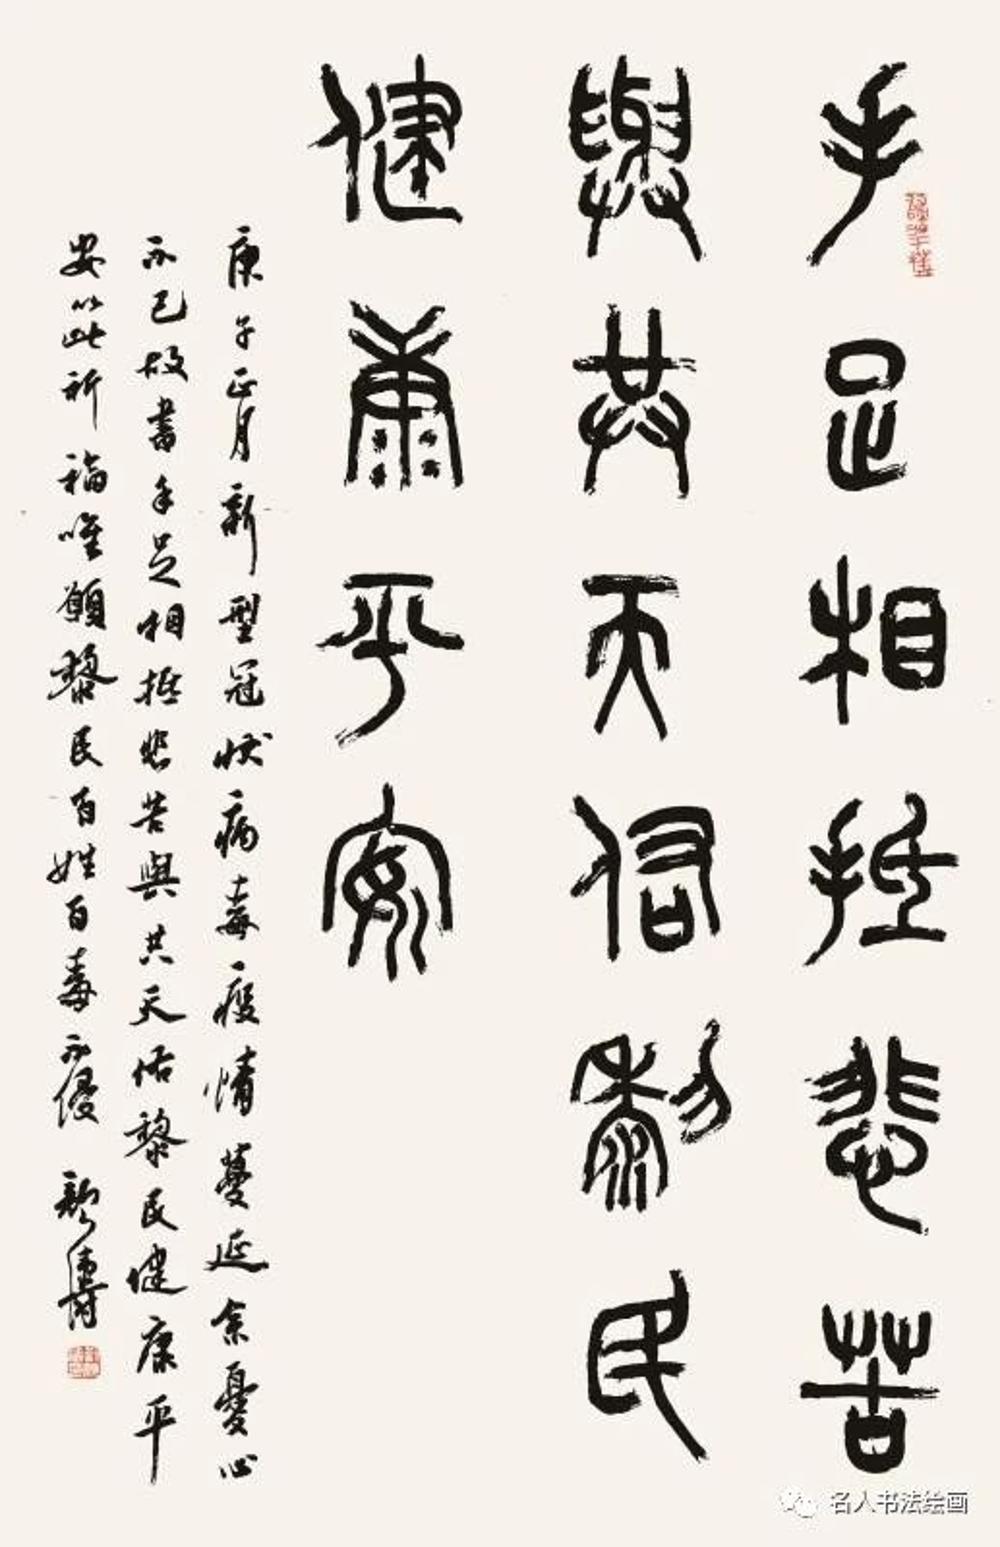 手足相抵悲苦
與共天佑黎民
健康平安
庚子正月新型冠狀病毒疫情蔓延余憂心
不已故書手足相抵悲苦與共天佑黎民健康平
安以此祈福唯願黎民百姓百毒不侵
名人书法绘画